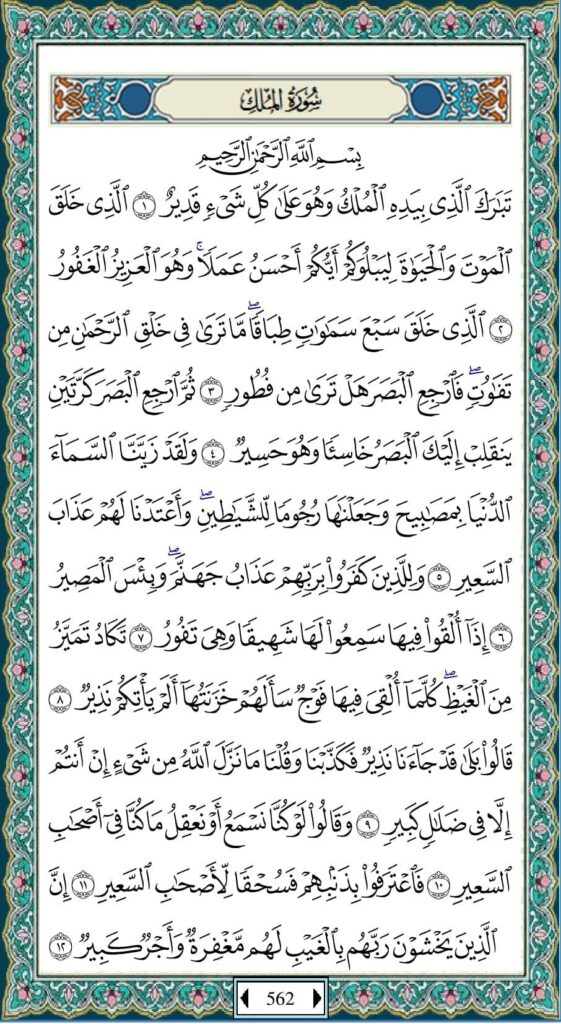 سُورَةُ المُلْكِ
بِسْمِ ٱللَّهِ ٱلرَّحْمَٰنِ ٱلرَّحِيمِ
تَبَٰرَكَ ٱلَّذِى بِيَدِهِ ٱلْمُلْكُ وَهُوَ عَلَىٰ كُلِّ شَىْءٍ قَدِيرٌ ١ ٱلَّذِى خَلَقَ
ٱلْمَوْتَ وَٱلْحَيَوٰةَ لِيَبْلُوَكُمْ أَيُّكُمْ أَحْسَنُ عَمَلًاۚ وَهُوَ ٱلْعَزِيزُ ٱلْغَفُورُ
٢ ٱلَّذِى خَلَقَ سَبْعَ سَمَٰوَٰتٍ طِبَاقًاۖ مَّا تَرَىٰ فِى خَلْقِ ٱلرَّحْمَٰنِ مِن
تَفَٰوُتٍۖ فَٱرْجِعِ ٱلْبَصَرَ هَلْ تَرَىٰ مِن فُطُورٍ ٣ ثُمَّ ٱرْجِعِ ٱلْبَصَرَ كَرَّتَيْنِ
يَنقَلِبْ إِلَيْكَ ٱلْبَصَرُ خَاسِئًا وَهُوَ حَسِيرٌ ٤ وَلَقَدْ زَيَّنَّا ٱلسَّمَآءَ
ٱلدُّنْيَا بِمَصَٰبِيحَ وَجَعَلْنَٰهَا رُجُومًا لِّلشَّيَٰطِينِۖ وَأَعْتَدْنَا لَهُمْ عَذَابَ
ٱلسَّعِيرِ ٥ وَلِلَّذِينَ كَفَرُوا۟ بِرَبِّهِمْ عَذَابُ جَهَنَّمَۖ وَبِئْسَ ٱلْمَصِيرُ
٦ إِذَآ أُلْقُوا۟ فِيهَا سَمِعُوا۟ لَهَا شَهِيقًا وَهِىَ تَفُورُ ٧ تَكَادُ تَمَيَّزُ
مِنَ ٱلْغَيْظِۖ كُلَّمَآ أُلْقِىَ فِيهَا فَوْجٌ سَأَلَهُمْ خَزَنَتُهَآ أَلَمْ يَأْتِكُمْ نَذِيرٌ ٨
قَالُوا۟ بَلَىٰ قَدْ جَآءَنَا نَذِيرٌ فَكَذَّبْنَا وَقُلْنَا مَا نَزَّلَ ٱللَّهُ مِن شَىْءٍ إِنْ أَنتُمْ
إِلَّا فِى ضَلَٰلٍ كَبِيرٍ ٩ وَقَالُوا۟ لَوْ كُنَّا نَسْمَعُ أَوْ نَعْقِلُ مَا كُنَّا فِىٓ أَصْحَٰبِ
ٱلسَّعِيرِ ١٠ فَٱعْتَرَفُوا۟ بِذَنۢبِهِمْ فَسُحْقًا لِّأَصْحَٰبِ ٱلسَّعِيرِ ١١ إِنَّ
ٱلَّذِينَ يَخْشَوْنَ رَبَّهُم بِٱلْغَيْبِ لَهُم مَّغْفِرَةٌ وَأَجْرٌ كَبِيرٌ ١٢
562